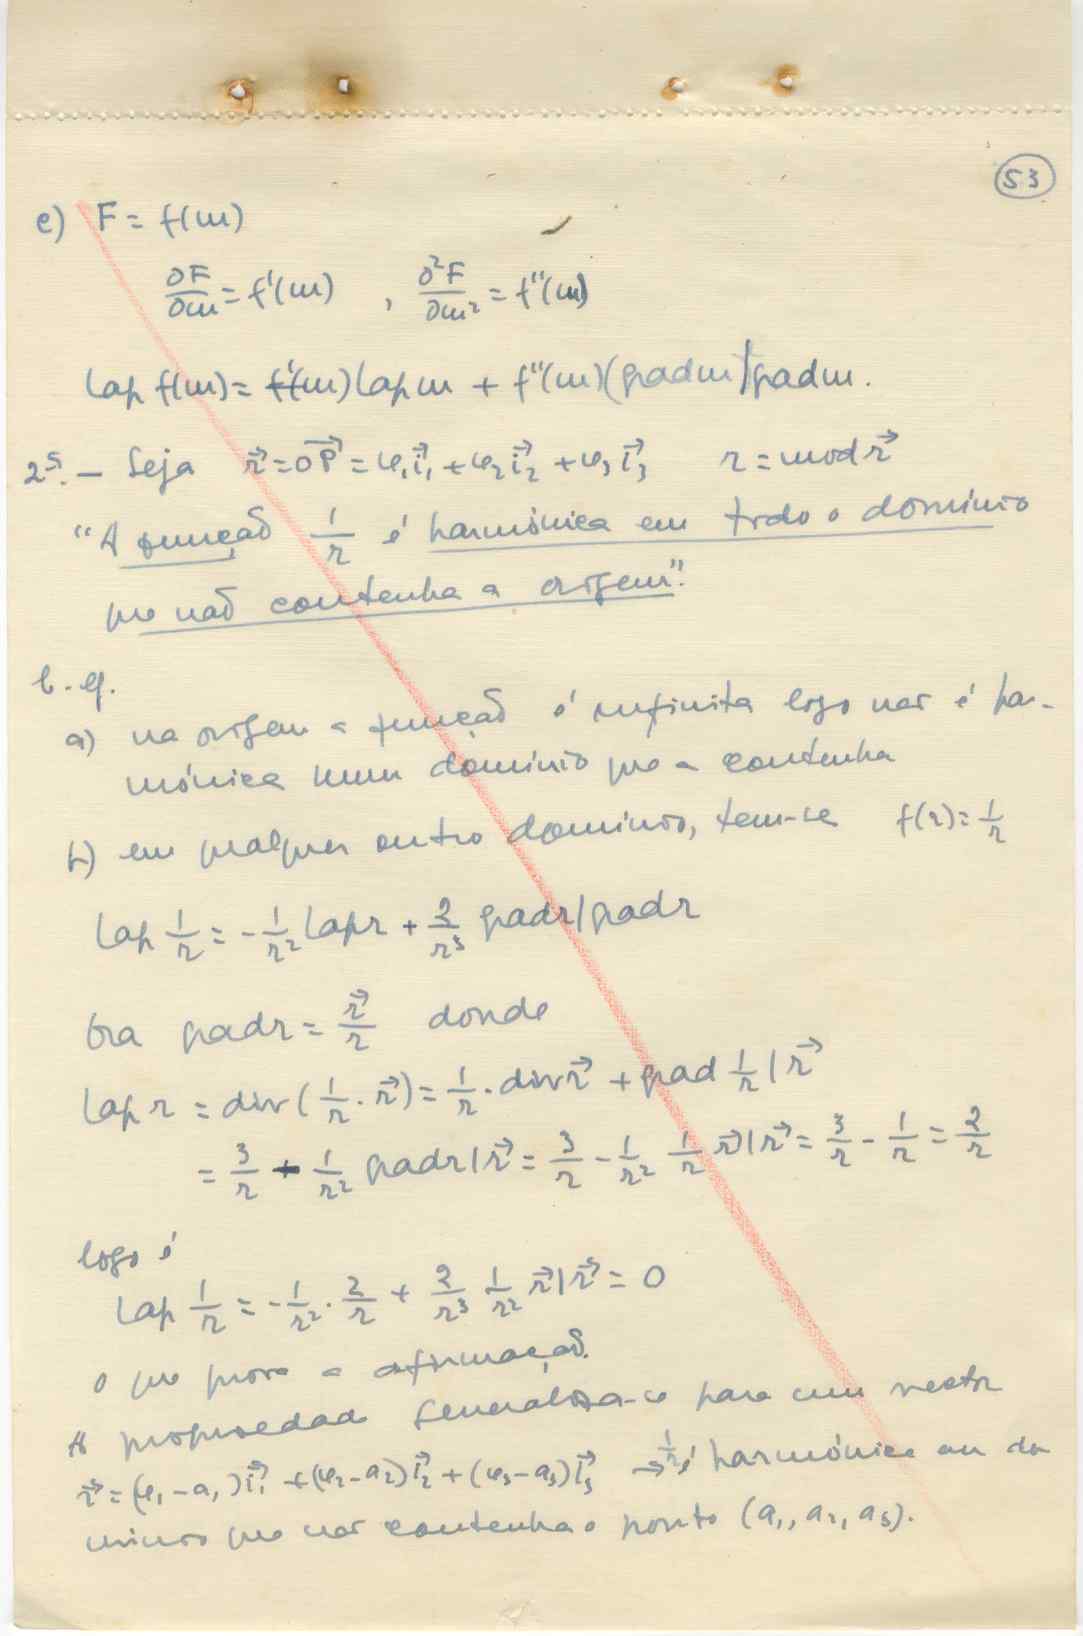 53
e) F = f(m)
∂F/∂m = f'(m) , ∂²F/∂m² = f''(m)
Lap f(m) = f'(m) lap m + f''(m) (grad m | grad m.
2º. – Seja r⃗ = OP⃗ = φ₁i⃗₁ + φ₂i⃗₂ + φ₃i⃗₃ r = mod r⃗
"A função 1/r é harmónica em todo o domínio
que não contenha a origem".
a) na origem a função é infinita logo não é har-
mónica num domínio que a contenha
b) em qualquer outro domínio, tem-se f(r) = 1/r
Lap 1/r = - 1/r² lap r + 2/r³ grad r | grad r
Ora grad r = r⃗/r donde
Lap r = div (1/r · r⃗) = 1/r · div r⃗ + grad 1/r | r⃗
= 3/r - 1/r² grad r | r⃗ = 3/r - 1/r² 1/r r⃗ | r⃗ = 3/r - 1/r = 2/r
logo é
Lap 1/r = - 1/r² · 2/r + 2/r³ 1/r² r⃗ | r⃗ = 0
o que prova a afirmação.
A propriedade generaliza-se para um vector
r⃗ = (φ₁ - a₁) i⃗₁ + (φ₂ - a₂) i⃗₂ + (φ₃ - a₃) i⃗₃ → 1/r é harmónica em do
mínio que não contenha o ponto (a₁, a₂, a₃).